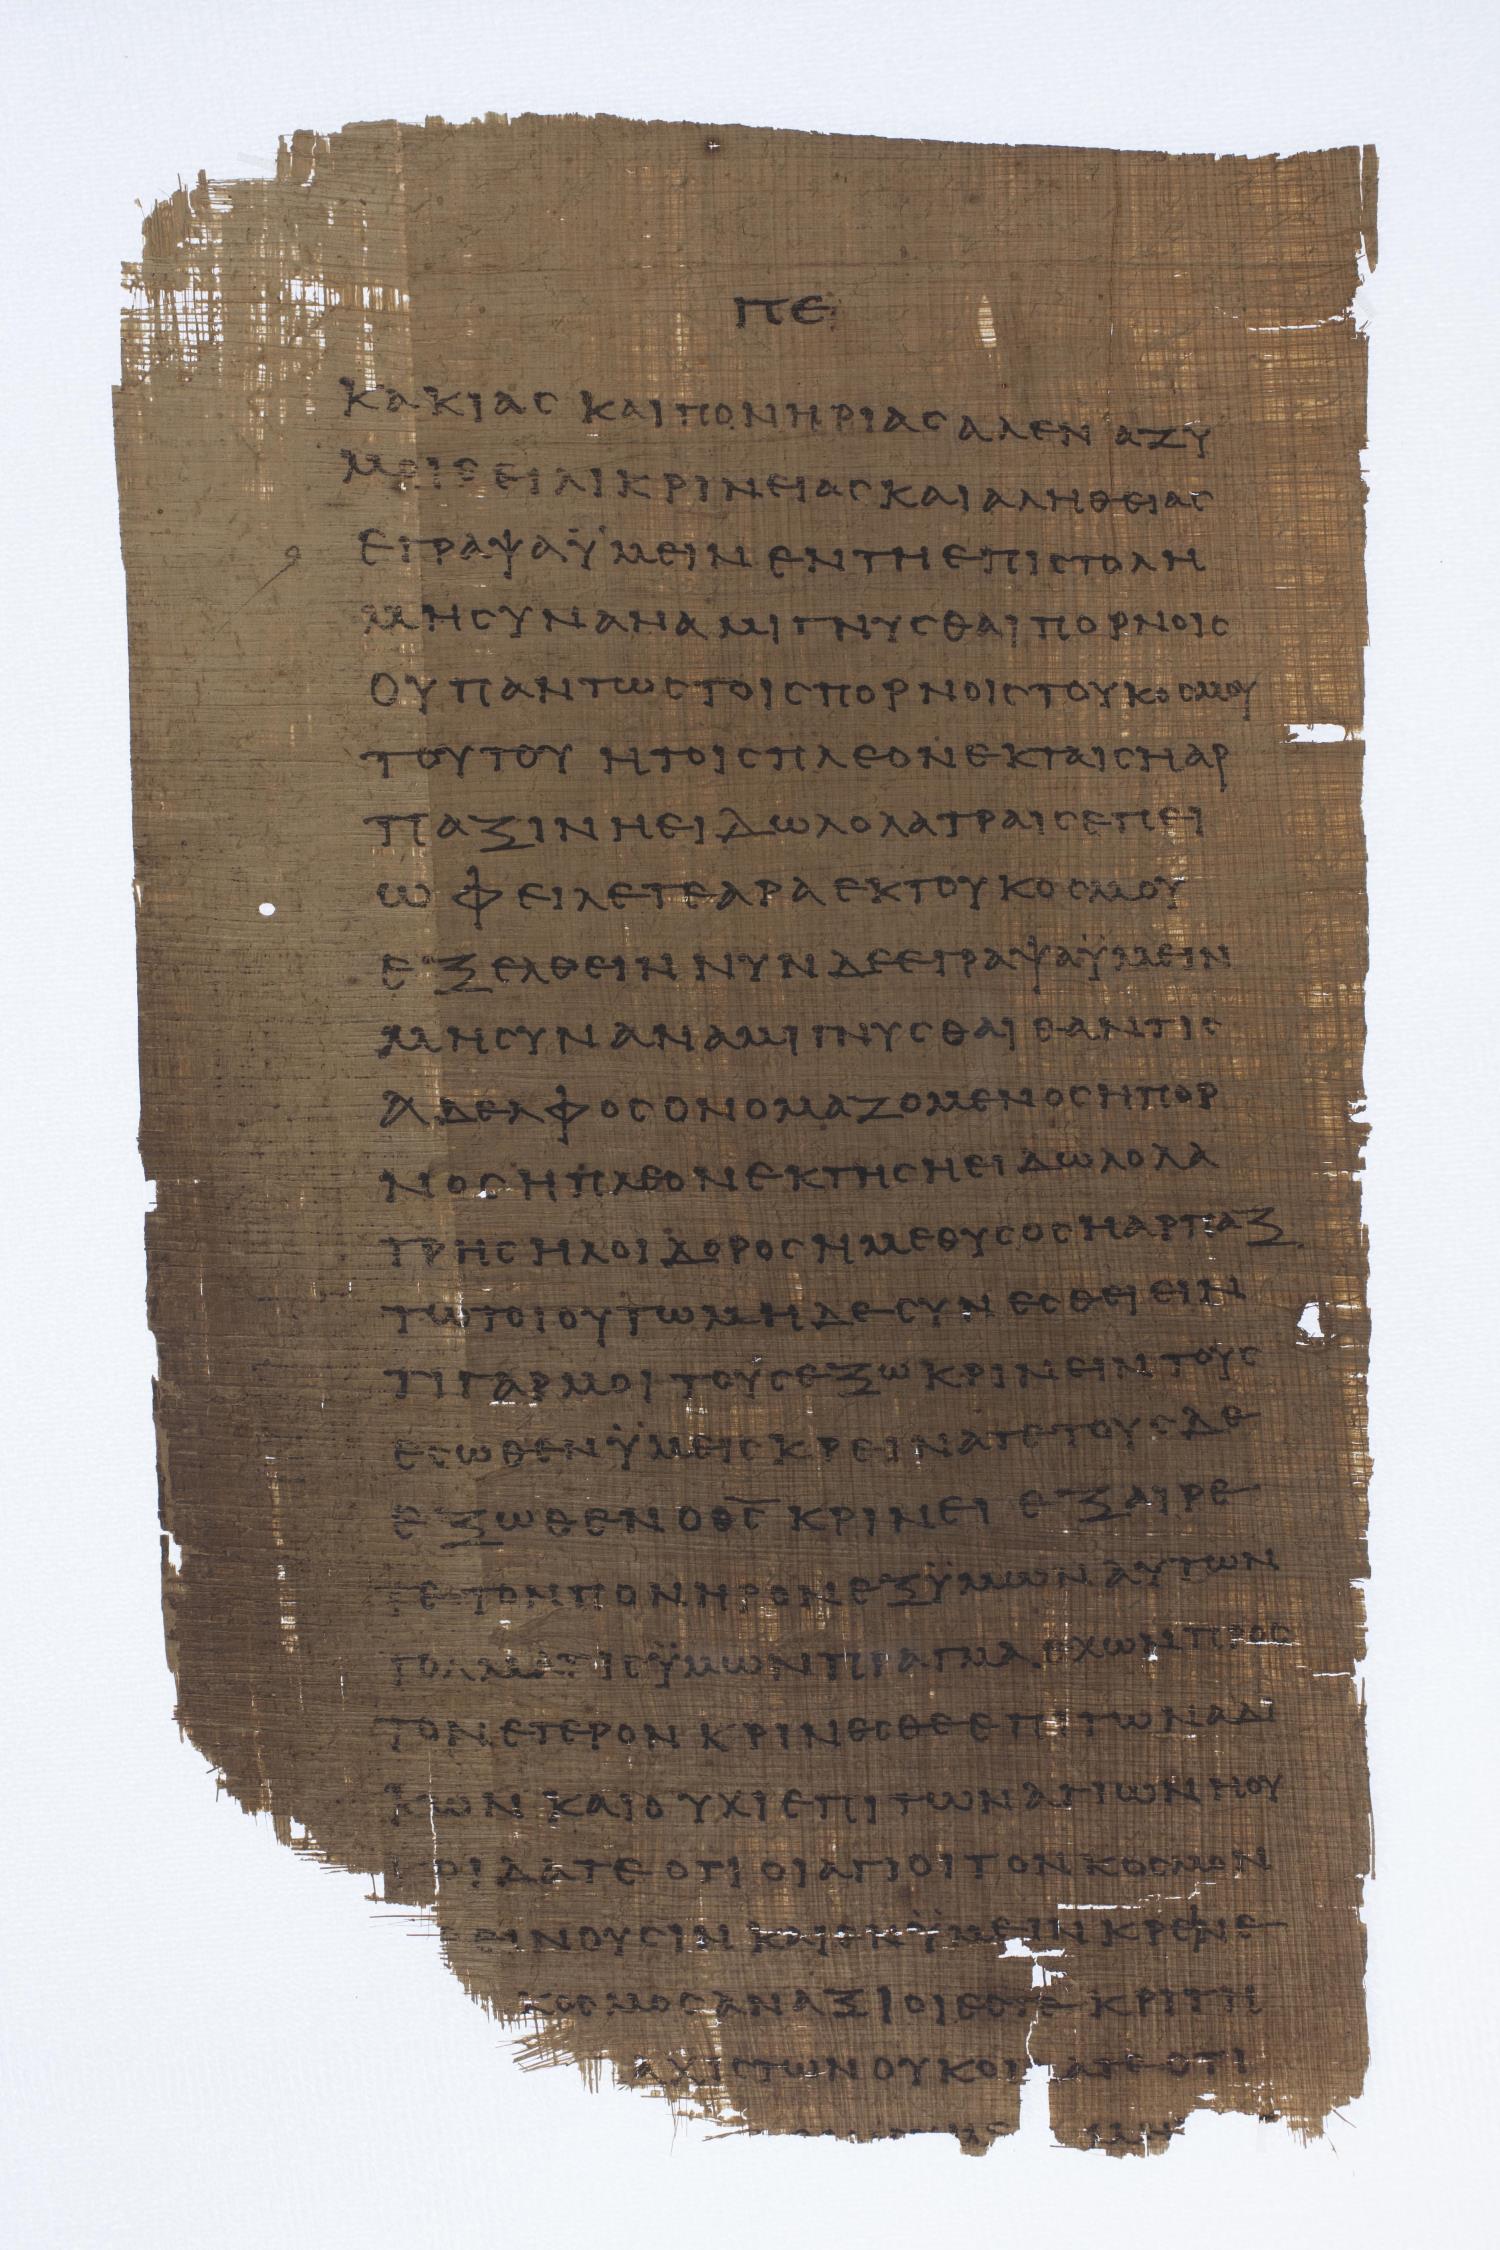 ΠΕ
ΚΑΚΙΑϹ ΚΑΙ ΠΟΝΗΡΙΑϹ ΑΛ ΕΝ ΑΖΥ
ΜΟΙϹ ΕΙΛΙΚΡΙΝΕΙΑϹ ΚΑΙ ΑΛΗΘΕΙΑϹ
ΕΓΡΑΨΑ ΫΜΕΙΝ ΕΝ ΤΗ ΕΠΙϹΤΟΛΗ
ΜΗ ϹΥΝΑΝΑΜΙΓΝΥϹΘΑΙ ΠΟΡΝΟΙϹ
ΟΥ ΠΑΝΤΩϹ ΤΟΙϹ ΠΟΡΝΟΙϹ ΤΟΥ ΚΟϹΜΟΥ
ΤΟΥΤΟΥ Η ΤΟΙϹ ΠΛΕΟΝΕΚΤΑΙϹ Η ΑΡ
ΠΑΞΙΝ Η ΕΙΔΩΛΟΛΑΤΡΑΙϹ ΕΠΕΙ
ΩΦΕΙΛΕΤΕ ΑΡΑ ΕΚ ΤΟΥ ΚΟϹΜΟΥ
ΕΞΕΛΘΕΙΝ ΝΥΝ ΔΕ ΕΓΡΑΨΑ ΫΜΕΙΝ
ΜΗ ϹΥΝΑΝΑΜΙΓΝΥϹΘΑΙ ΕΑΝ ΤΙϹ
ΑΔΕΛΦΟϹ ΟΝΟΜΑΖΟΜΕΝΟϹ Η ΠΟΡ
ΝΟϹ Η ΠΛΕΟΝΕΚΤΗϹ Η ΕΙΔΩΛΟΛΑ
ΤΡΗϹ Η ΛΟΙΔΟΡΟϹ Η ΜΕΘΥϹΟϹ Η ΑΡΠΑΞ
ΤΩ ΤΟΙΟΥΤΩ ΜΗΔΕ ϹΥΝΕϹΘΕΙΕΙΝ
ΤΙ ΓΑΡ ΜΟΙ ΤΟΥϹ ΕΞΩ ΚΡΙΝΕΙΝ ΤΟΥϹ
ΕϹΩΘΕΝ ΫΜΕΙϹ ΚΡΕΙΝΑΤΕ ΤΟΥϹ ΔΕ
ΕΞΩΘΕΝ Ο Θ̅Ϲ̅ ΚΡΙΝΕΙ ΕΞΑΙΡΕ
ΤΕ ΤΟΝ ΠΟΝΗΡΟΝ ΕΞ ΫΜΩΝ ΑΥΤΩΝ
ΤΟΛΜΑ ΤΙϹ ΫΜΩΝ ΠΡΑΓΜΑ ΕΧΩΝ ΠΡΟϹ
ΤΟΝ ΕΤΕΡΟΝ ΚΡΙΝΕϹΘΕ ΕΠΙ ΤΩΝ ΑΔΙ
ΚΩΝ ΚΑΙ ΟΥΧΙ ΕΠΙ ΤΩΝ ΑΓΙΩΝ Η ΟΥ
Κ ΟΙΔΑΤΕ ΟΤΙ ΟΙ ΑΓΙΟΙ ΤΟΝ ΚΟϹΜΟΝ
ΕΙΝΟΥϹΙΝ ΚΑΙ ΕΝ ΫΜΕΙΝ ΚΡΕΙΝΕ
ΚΟϹΜΟϹ ΑΝΑΞΙΟΙ ΕϹΤΕ ΚΡΙΤΗ
ΑΧΙϹΤΩΝ ΟΥΚ ΟΙ ΑΤΕ ΟΤΙ